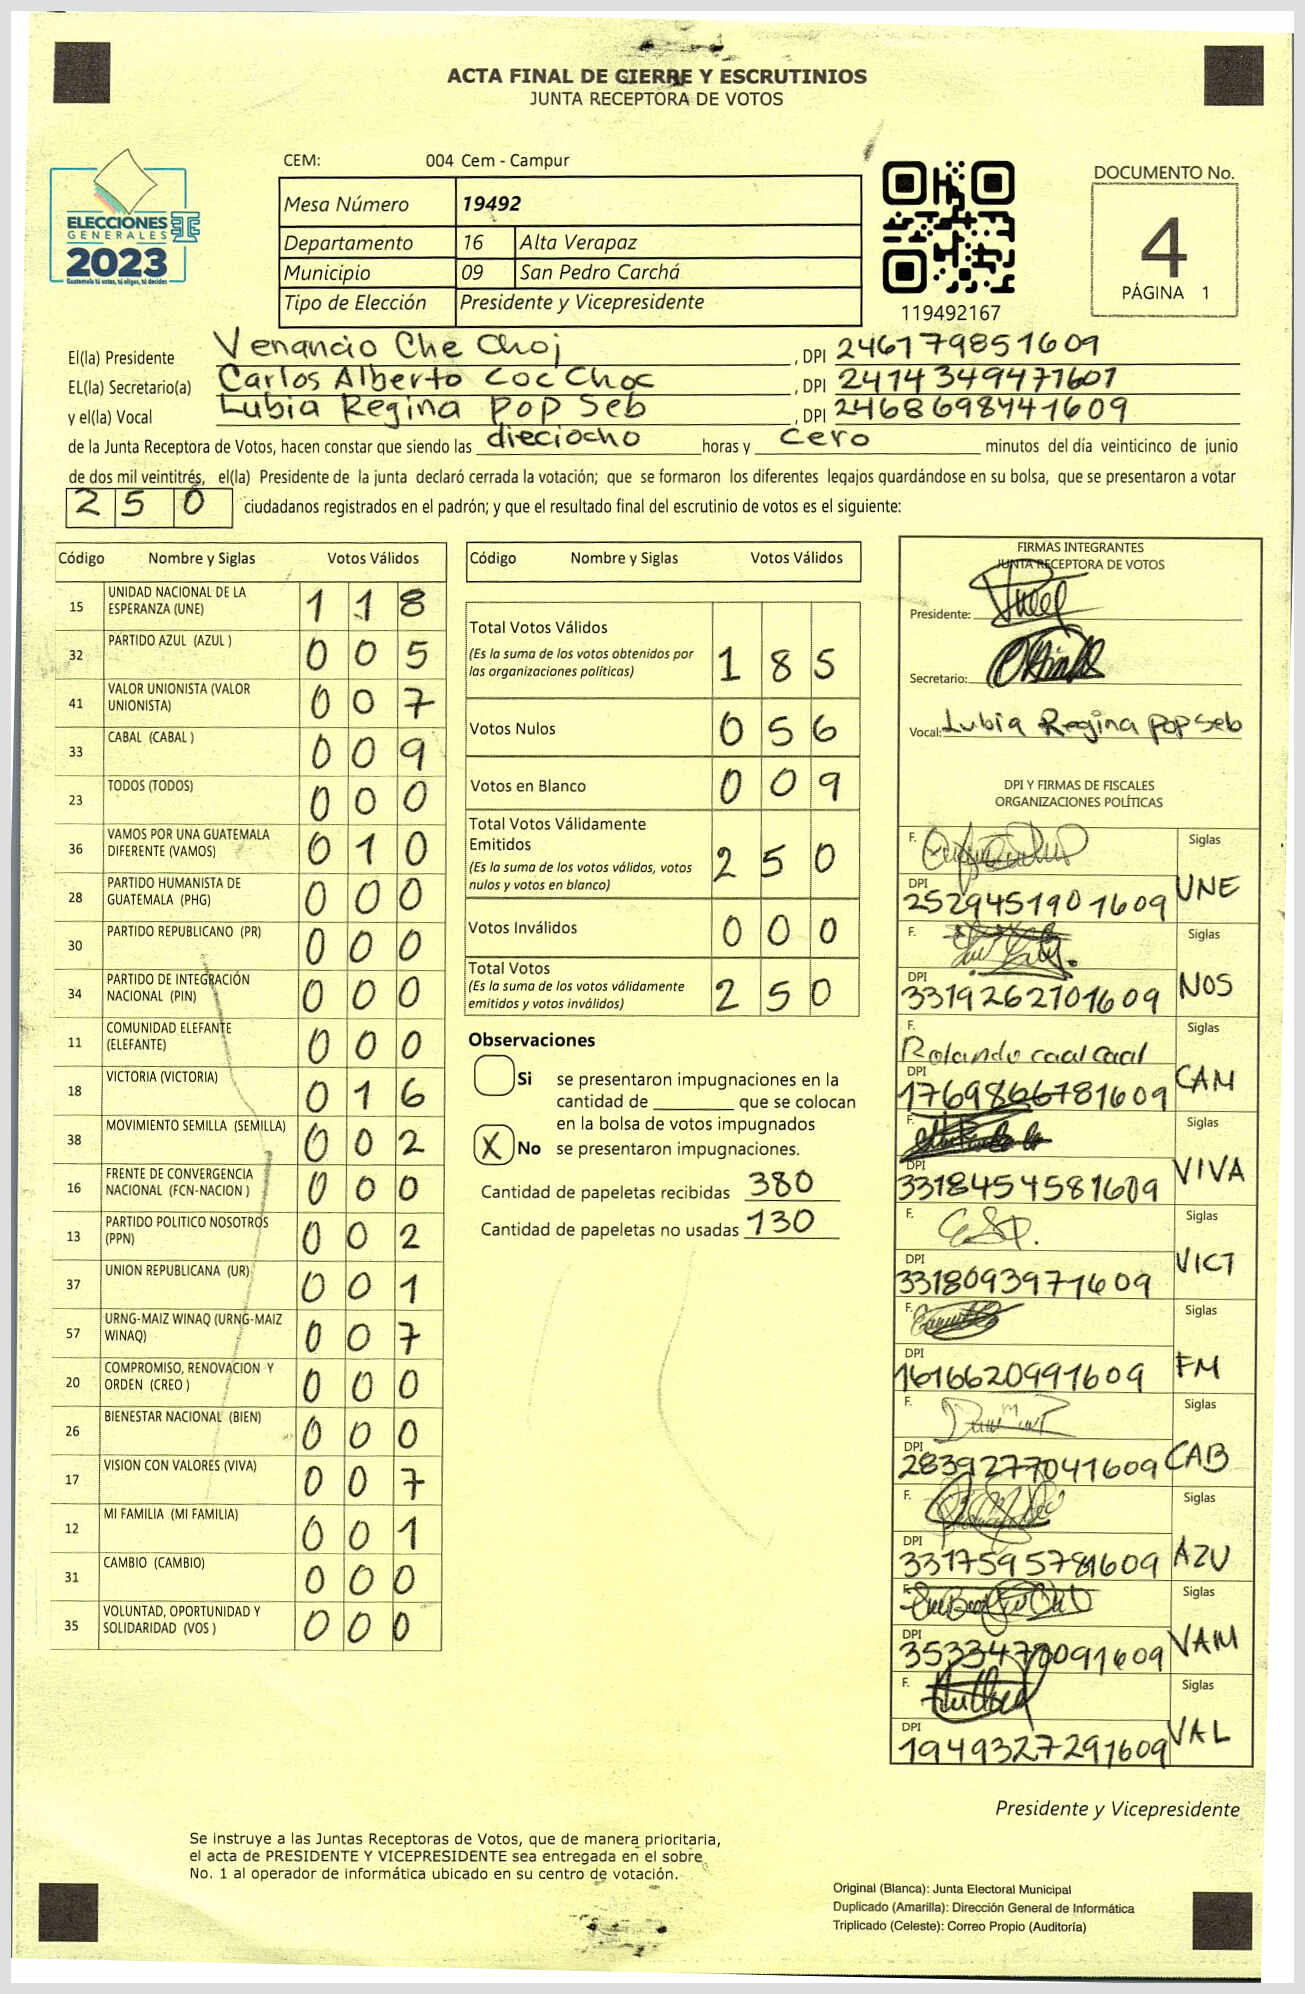 ACTA FINAL DE CIERRE Y ESCRUTINIOS
JUNTA RECEPTORA DE VOTOS
CEM: 004 Cem - Campur
ELECCIONES
GENERALES
2023
Guatemala tú votas, tú eliges, tú decides
Mesa Número 19492
Departamento 16 Alta Verapaz
Municipio 09 San Pedro Carchá
Tipo de Elección Presidente y Vicepresidente
119492167
DOCUMENTO No.
4
PÁGINA 1
El(la) Presidente Venancio Che Choj , DPI 2461798551609
EL(la) Secretario(a) Carlos Alberto Coc Choc , DPI 2414349471601
y el(la) Vocal Lubia Regina Pop Seb , DPI 2468698441609
de la Junta Receptora de Votos, hacen constar que siendo las dieciocho horas y cero minutos del día veinticinco de junio
de dos mil veintitrés, el(la) Presidente de la junta declaró cerrada la votación; que se formaron los diferentes legajos guardándose en su bolsa, que se presentaron a votar
250 ciudadanos registrados en el padrón; y que el resultado final del escrutinio de votos es el siguiente:
Código Nombre y Siglas Votos Válidos
15 UNIDAD NACIONAL DE LA ESPERANZA (UNE) 1 1 8
32 PARTIDO AZUL (AZUL ) 0 0 5
41 VALOR UNIONISTA (VALOR UNIONISTA) 0 0 7
33 CABAL (CABAL ) 0 0 9
23 TODOS (TODOS) 0 0 0
36 VAMOS POR UNA GUATEMALA DIFERENTE (VAMOS) 0 1 0
28 PARTIDO HUMANISTA DE GUATEMALA (PHG) 0 0 0
30 PARTIDO REPUBLICANO (PR) 0 0 0
34 PARTIDO DE INTEGRACIÓN NACIONAL (PIN) 0 0 0
11 COMUNIDAD ELEFANTE (ELEFANTE) 0 0 0
18 VICTORIA (VICTORIA) 0 1 6
38 MOVIMIENTO SEMILLA (SEMILLA) 0 0 2
16 FRENTE DE CONVERGENCIA NACIONAL (FCN-NACION ) 0 0 0
13 PARTIDO POLITICO NOSOTROS (PPN) 0 0 2
37 UNION REPUBLICANA (UR) 0 0 1
57 URNG-MAIZ WINAQ (URNG-MAIZ WINAQ) 0 0 7
20 COMPROMISO, RENOVACION Y ORDEN (CREO ) 0 0 0
26 BIENESTAR NACIONAL (BIEN) 0 0 0
17 VISION CON VALORES (VIVA) 0 0 7
12 MI FAMILIA (MI FAMILIA) 0 0 1
31 CAMBIO (CAMBIO) 0 0 0
35 VOLUNTAD, OPORTUNIDAD Y SOLIDARIDAD (VOS ) 0 0 0
Código Nombre y Siglas Votos Válidos
Total Votos Válidos
(Es la suma de los votos obtenidos por
las organizaciones políticas) 1 8 5
Votos Nulos 0 5 6
Votos en Blanco 0 0 9
Total Votos Válidamente
Emitidos
(Es la suma de los votos válidos, votos
nulos y votos en blanco) 2 5 0
Votos Inválidos 0 0 0
Total Votos
(Es la suma de los votos válidamente
emitidos y votos inválidos) 2 5 0
Observaciones
Si se presentaron impugnaciones en la
cantidad de ________ que se colocan
en la bolsa de votos impugnados
X No se presentaron impugnaciones.
Cantidad de papeletas recibidas 380
Cantidad de papeletas no usadas 130
FIRMAS INTEGRANTES
JUNTA RECEPTORA DE VOTOS
Presidente:
Secretario:
Vocal: Lubia Regina Pop Seb
DPI Y FIRMAS DE FISCALES
ORGANIZACIONES POLÍTICAS
F. Siglas
DPI 2529451901609 UNE
F. Siglas
DPI 3319262101609 NOS
F. Rolando caal caal Siglas
DPI 1769866781609 CAM
F. Siglas
DPI 3318454581609 VIVA
F. Siglas
DPI 3318093971609 VICT
F. Siglas
DPI 1616620991609 FM
F. Siglas
DPI 2839277041609 CAB
F. Siglas
DPI 3317595781609 AZU
F. Siglas
DPI 3533470091609 VAM
F. Siglas
DPI 1949327291609 VAL
Presidente y Vicepresidente
Se instruye a las Juntas Receptoras de Votos, que de manera prioritaria,
el acta de PRESIDENTE Y VICEPRESIDENTE sea entregada en el sobre
No. 1 al operador de informática ubicado en su centro de votación.
Original (Blanca): Junta Electoral Municipal
Duplicado (Amarilla): Dirección General de Informática
Triplicado (Celeste): Correo Propio (Auditoría)